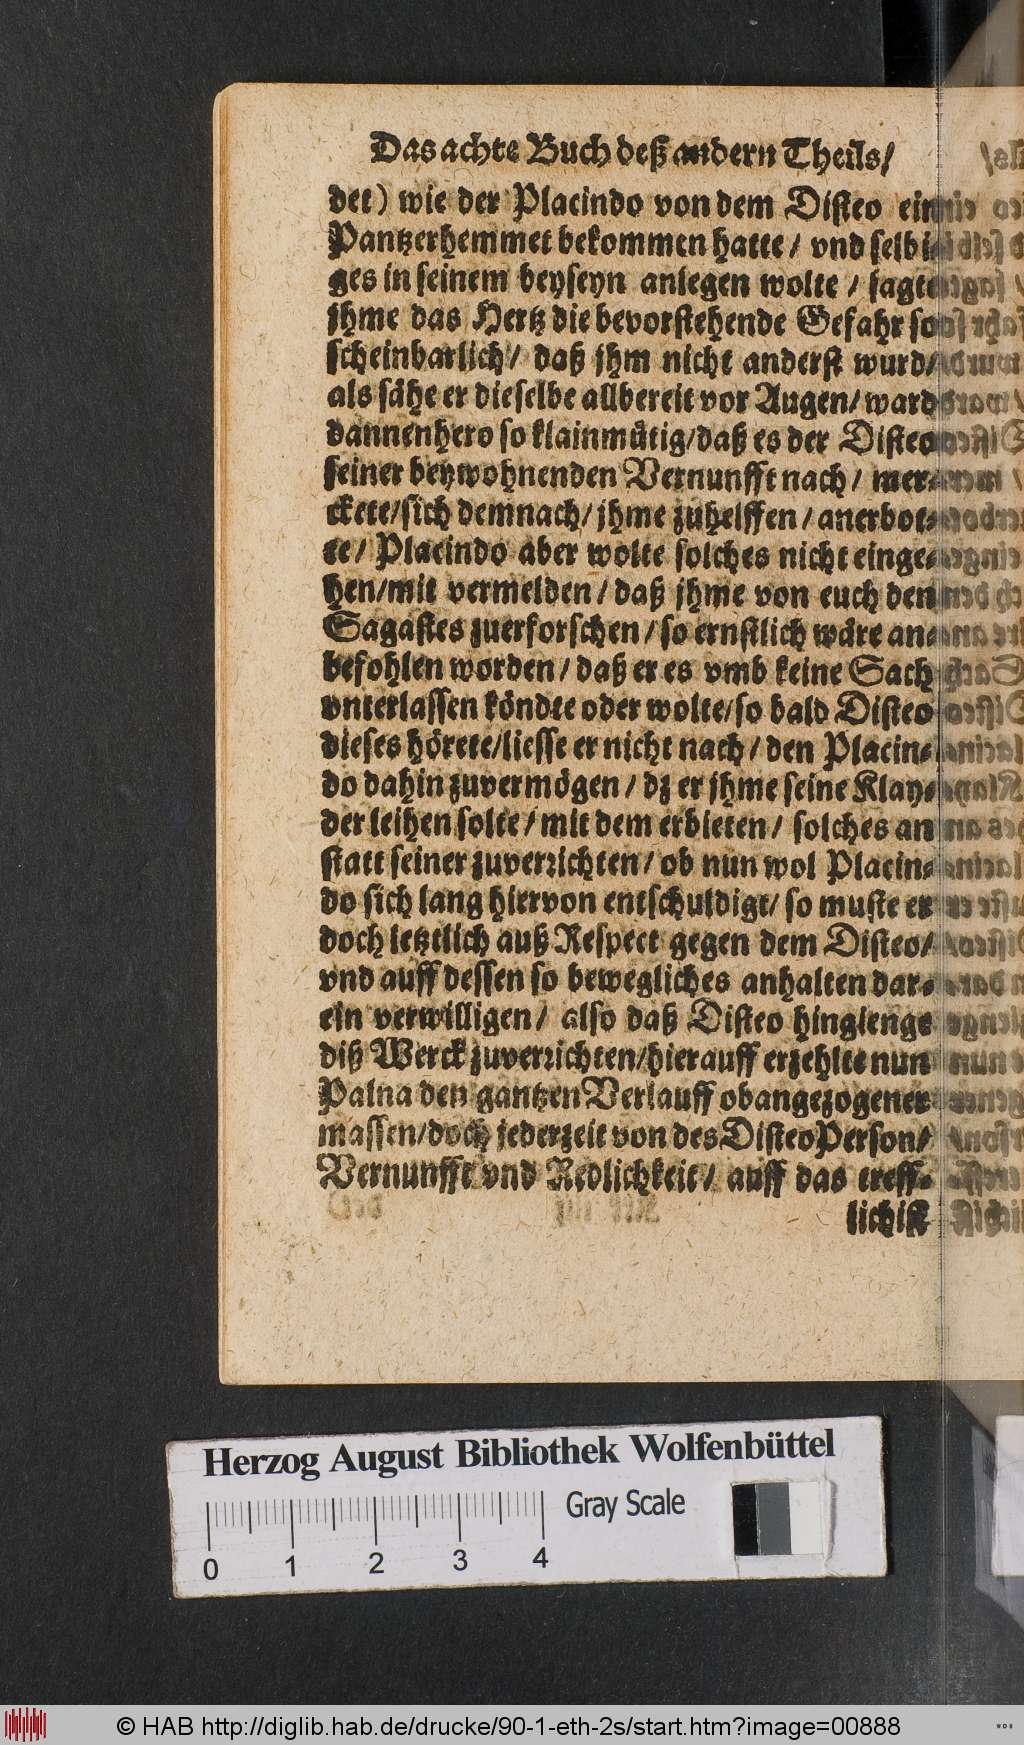 Das achte Buch deß andern Theils/
det) wie der Placindo von dem Disteo ein
Pantzerhemmet bekommen hatte / vnd selbi
ges in seinem beyseyn anlegen wolte / sagte
jhme das Hertz die bevorstehende Gefahr so
scheinbarlich / daß jhm nicht anderst wurd/
als sähe er dieselbe allbereit vor Augen/ ward
dannenhero so klainmütig/daß es der Disteo
seiner beywohnenden Vernunfft nach / mer-
ckete/sich demnach/ jhme zuhelffen / anerbot-
te / Placindo aber wolte solches nicht einge-
hen/mit vermelden / daß jhme von euch den
Sagastes zuerforschen / so ernstlich wäre an-
befohlen worden / daß er es vmb keine Sach
vnterlassen köndte oder wolte/so bald Disteo
dieses hörete/liesse er nicht nach / den Placin-
do dahin zuvermögen / dz er jhme seine Klay-
der leihen solte / mit dem erbieten / solches an
statt seiner zuverrichten / ob nun wol Placin-
do sich lang hiervon entschuldigt/ so muste er
doch letztlich auß Respect gegen dem Disteo/
vnd auff dessen so bewegliches anhalten dar-
ein verwilligen / also daß Disteo hingienge
diß Werck zuverrichten/hierauff erzehlte nun
Palna den gantzen Verlauff obangezogener
massen/doch jederzeit von des Disteo Person/
Vernunfft vnd Redlichkeit / auff das treff-
lichist
Herzog August Bibliothek Wolfenbüttel
Gray Scale
0 1 2 3 4
© HAB http://diglib.hab.de/drucke/90-1-eth-2s/start.htm?image=00888